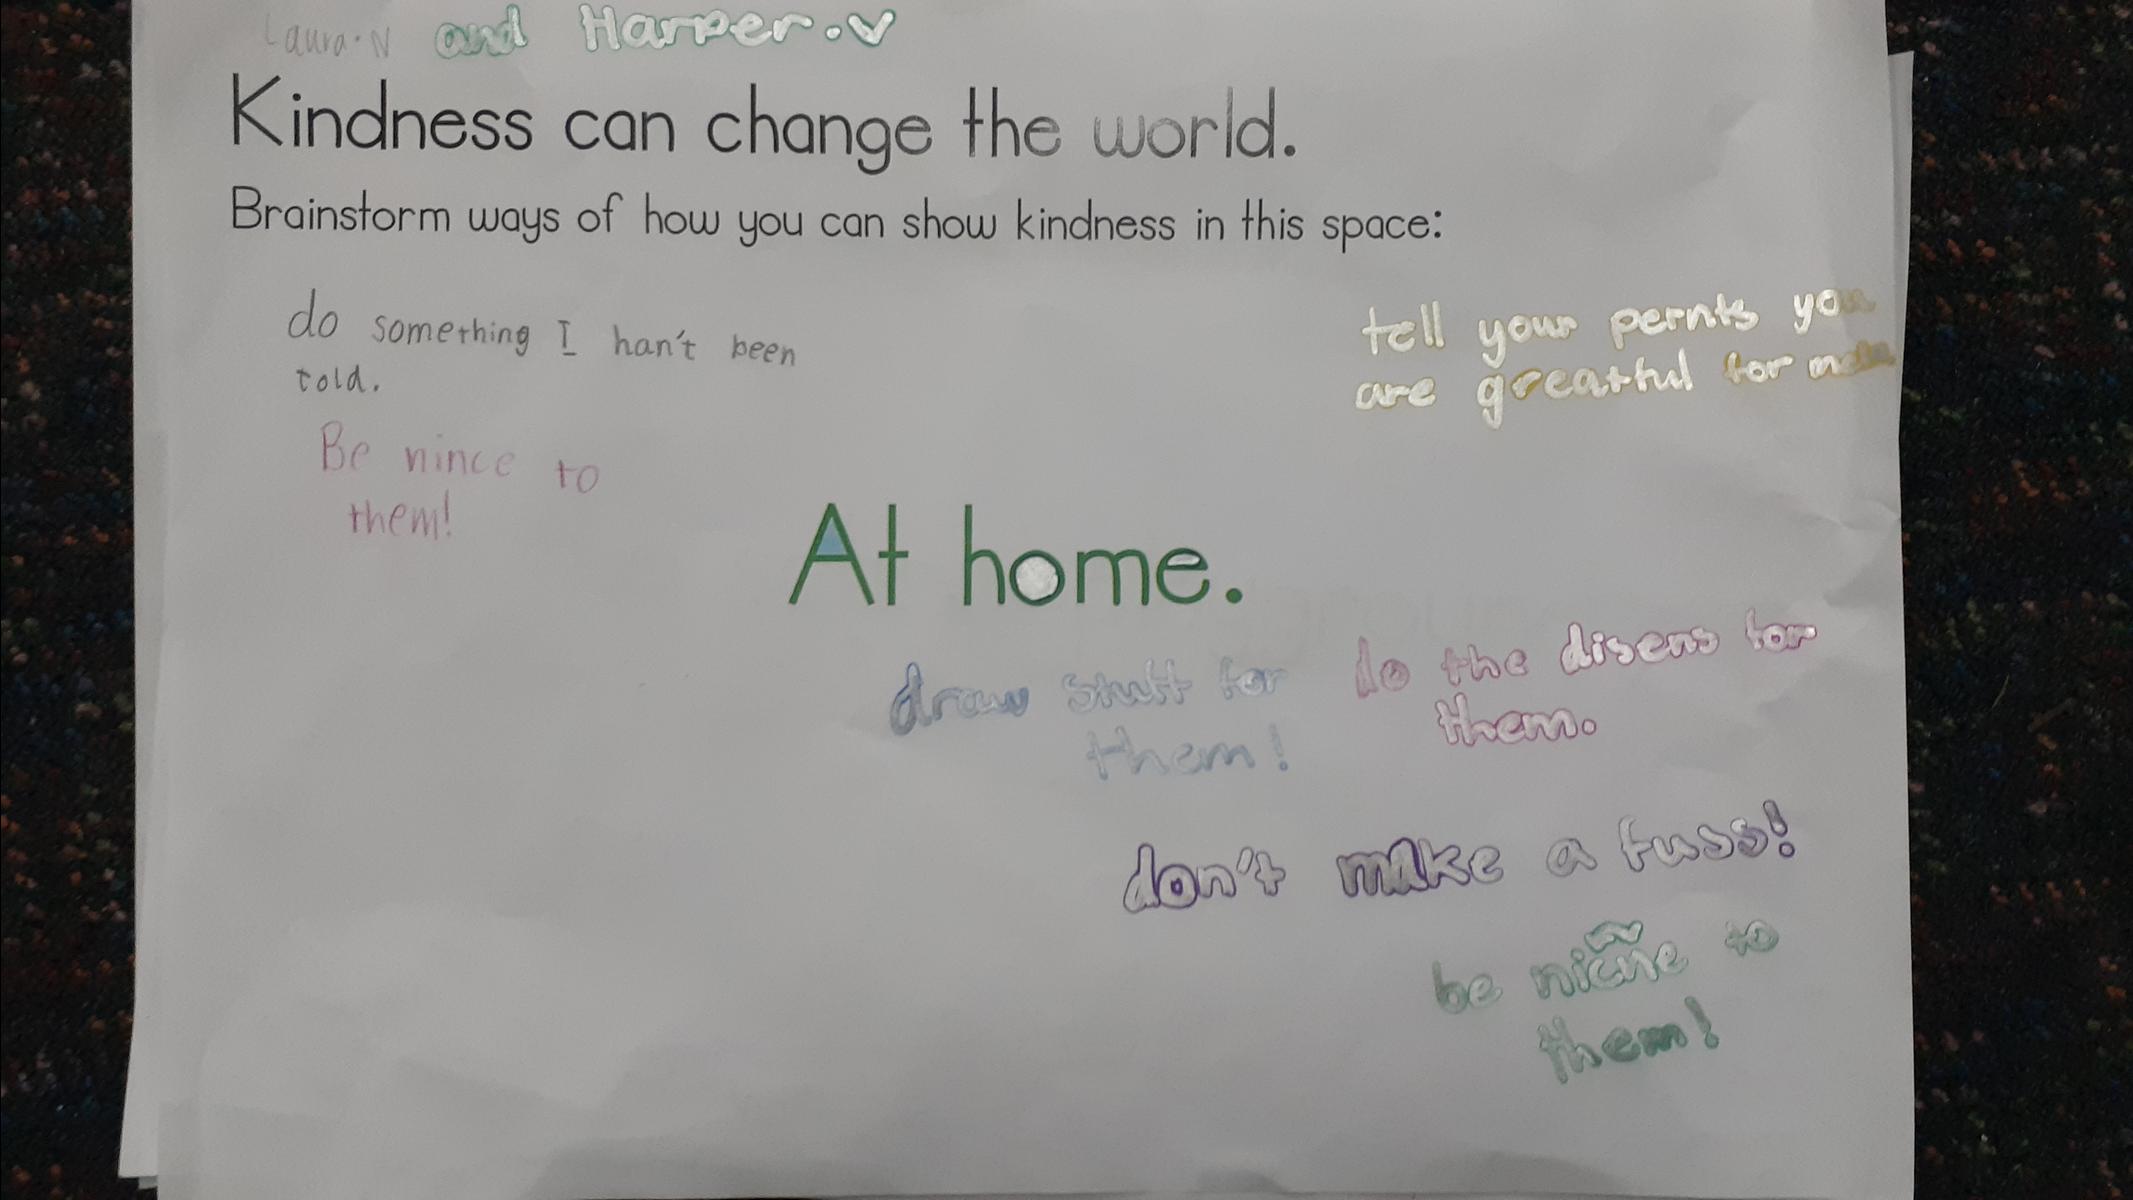 Laura.N and Harper.V
Kindness can change the world.
Brainstorm ways of how you can show kindness in this space:
do something I han't been
told.
Be nince to
them!
tell your pernts you
are greatful for
At home.
draw stuff for
them!
do the disens for
them.
don't make a fuss!
be to
them!